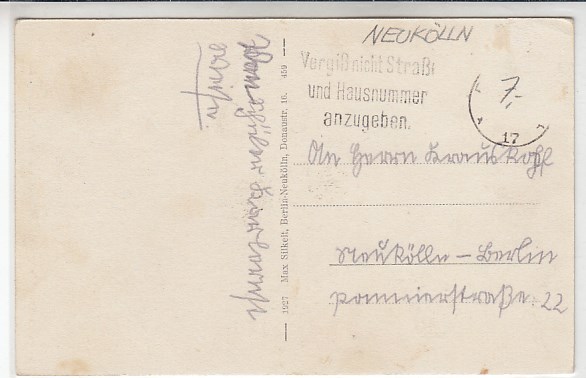 NEUKÖLLN
Vergiß nicht Straße
und Hausnummer
anzugeben.
7,-
17
An Herrn Krauskopf
Neukölln – Berlin
Pannierstraße. 22
1927 Max Silkeit, Berlin-Neukölln, Donaustr. 16. 459